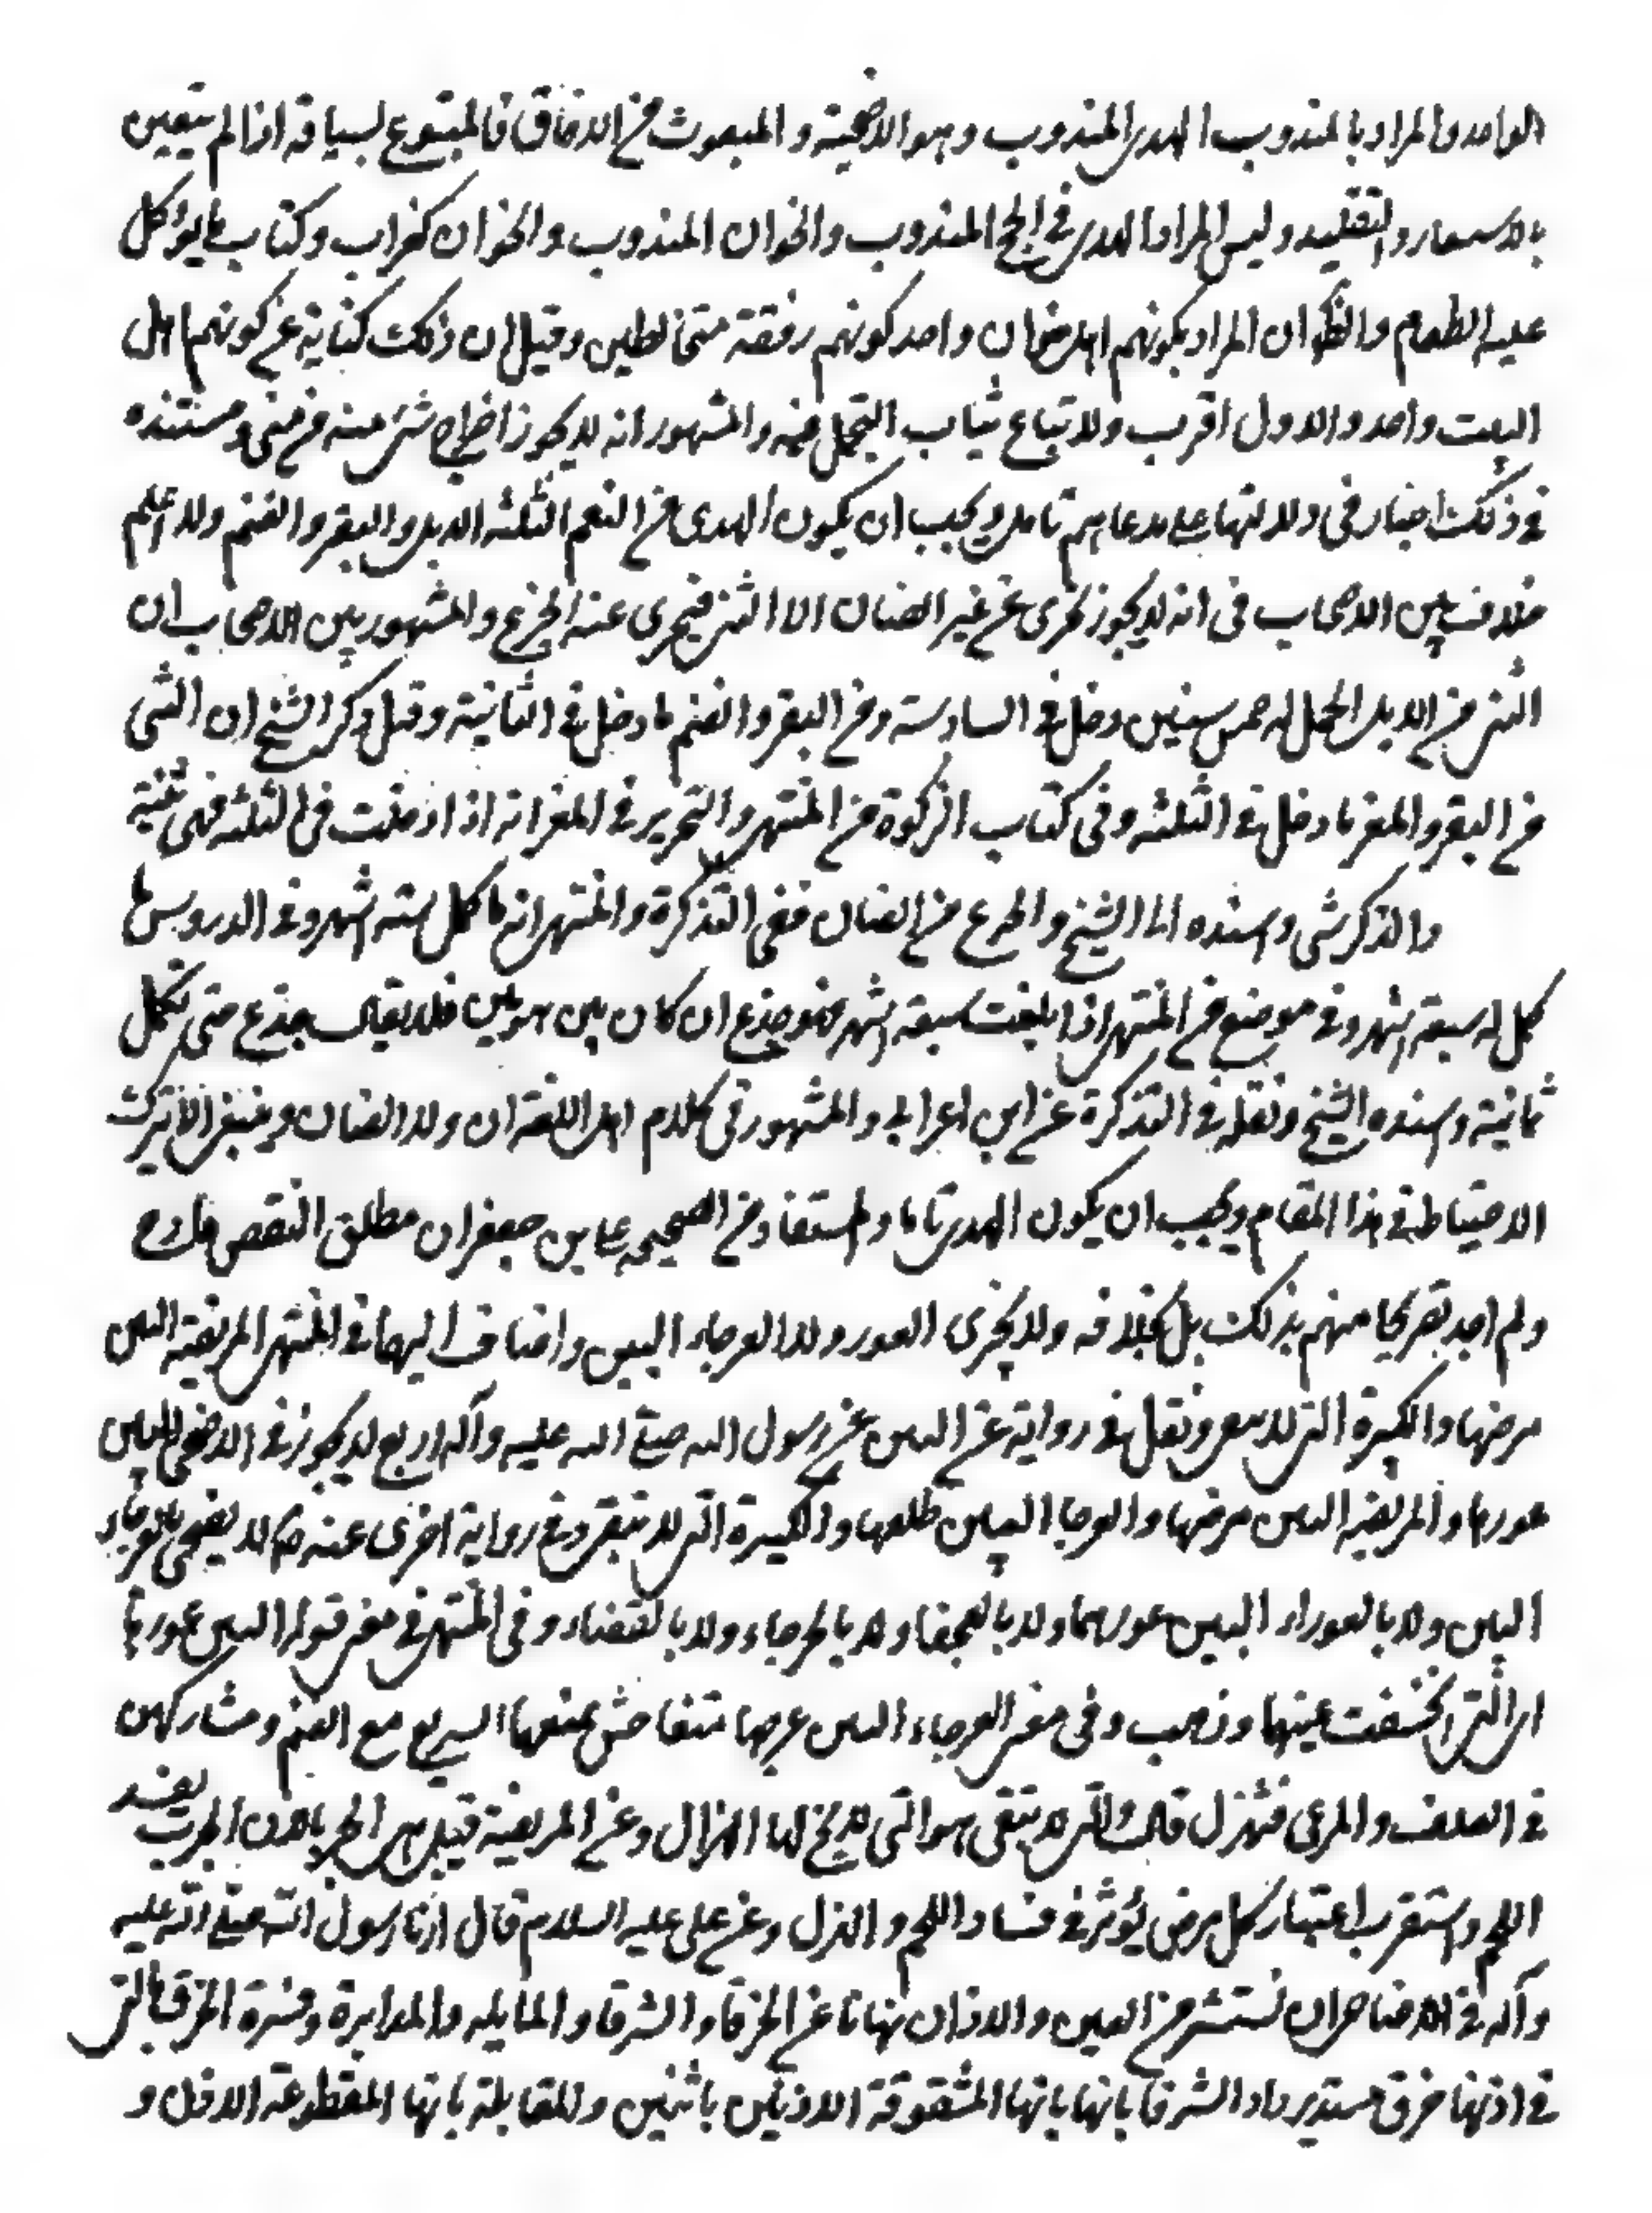 الواحد والمراد بالمندوب الهدي المندوب وهو الاضحية والمبعوث من الافاق فالمتبوع لسياقه اذا لم يتعين
بالاشعار والتقليد وليس المراد الهدي في الحج المندوب والخوان المندوب والخوان كغراب وكتاب ما يؤكل
عليه الطعام والظ ان المراد بكونهم اهل خوان واحد كونهم رفقة متخالطين وقيل ان ذلك كناية عن كونهم اهل
البيت واحد والاول اقرب ولا تباع ثياب التجمل فيه والمشهور انه لا يجوز اخراج شئ منه من منى ومستنده
في ذلك اخبار في دلالتها على مدعاهم تامل ويجب ان يكون الهدي من النعم الثلثه الابل والبقر والغنم ولا اعلم
خلاف بين الاصحاب في انه لا يجوز يجزى عن غير الضان الا الثني فيجزى عنه الجذع والمشهور بين الاصحاب ان
الثني من الابل ما كمل له خمس سنين ودخل في السادسة ومن البقر والغنم ما دخل في الثانية وقيل ذكر الشيخ ان الثنى
من البقر والمعز ما دخل في الثلثه وفى كتاب الزكوة من المنتهى والتحرير في المعز انه اذا دخلت في الثلثه فهى ثنية
والذكر ثنى واسنده الى الشيخ والجذع من الضان ففي التذكرة والمنتهى انه ما كمل ستة اشهر وفى الدروس ما
كمل له سبعة اشهر وفى موضع من المنتهى اذا بلغت سبعة اشهر فهو جذع ان كان بين هرمين فلا يقال جذع حتى تكمل
ثمانية واسنده الشيخ ونقله في التذكرة عن ابن اعرابي والمشهور في كلام اهل اللغة ان ولد الضان وينبغى الا يترك
الاحتياط في هذا المقام ويجب ان يكون الهدي تاما والمستفاد من الصحيحه علي بن جعفر ان مطلق النقص قادح
ولم اجد تصريحا منهم بذلك بل بخلافه ولا يجزى العور ولا العرجاء البين واضاف اليهما في المنتهى المريضة البين
مرضها والكبيرة التي لا تنقى ونقل في رواية عن البراء عن رسول الله صلى الله عليه وآله اربع لا يجوز في الاضحى البين
عورها والمريضه البين مرضها والعرجا البين ظلعها والكبيرة التى لا تنقى وفى رواية اخرى عنه ص لا يضحى بالعرجاء
البين ولا بالعوراء البين عورها ولا بالعجفا ولا بالجرباء ولا بالعضباء وفى المنتهى في معنى قوله البين عورها
اى التى انخسفت عينها وذهب وفى معنى العرجاء البين عرجها متفاحش يمنعها السير مع الغنم ومشاركهن
في العلف والمرعى فتهزل قال والتى لا تنقى هو التى لا مخ لها الهزال وعن المريضة قيل هى الجرباء لان الجرب يفسد
اللحم واستقرب اعتبار كل مرض يؤثر في فساد اللحم والهزل وعن على عليه السلام قال امرنا رسول الله صلى الله عليه
وآله في الاضاحى ان نستشرف العين والاذان نهانا عن الخرقاء والشرقا والمقابله والمدابرة وفسرة الخرق بالتى
في اذنها خرق مستدير والشرقا بانها بانها المشقوقة الاذنين باثنين والمقابلة بانها المقطوعة الاذن و